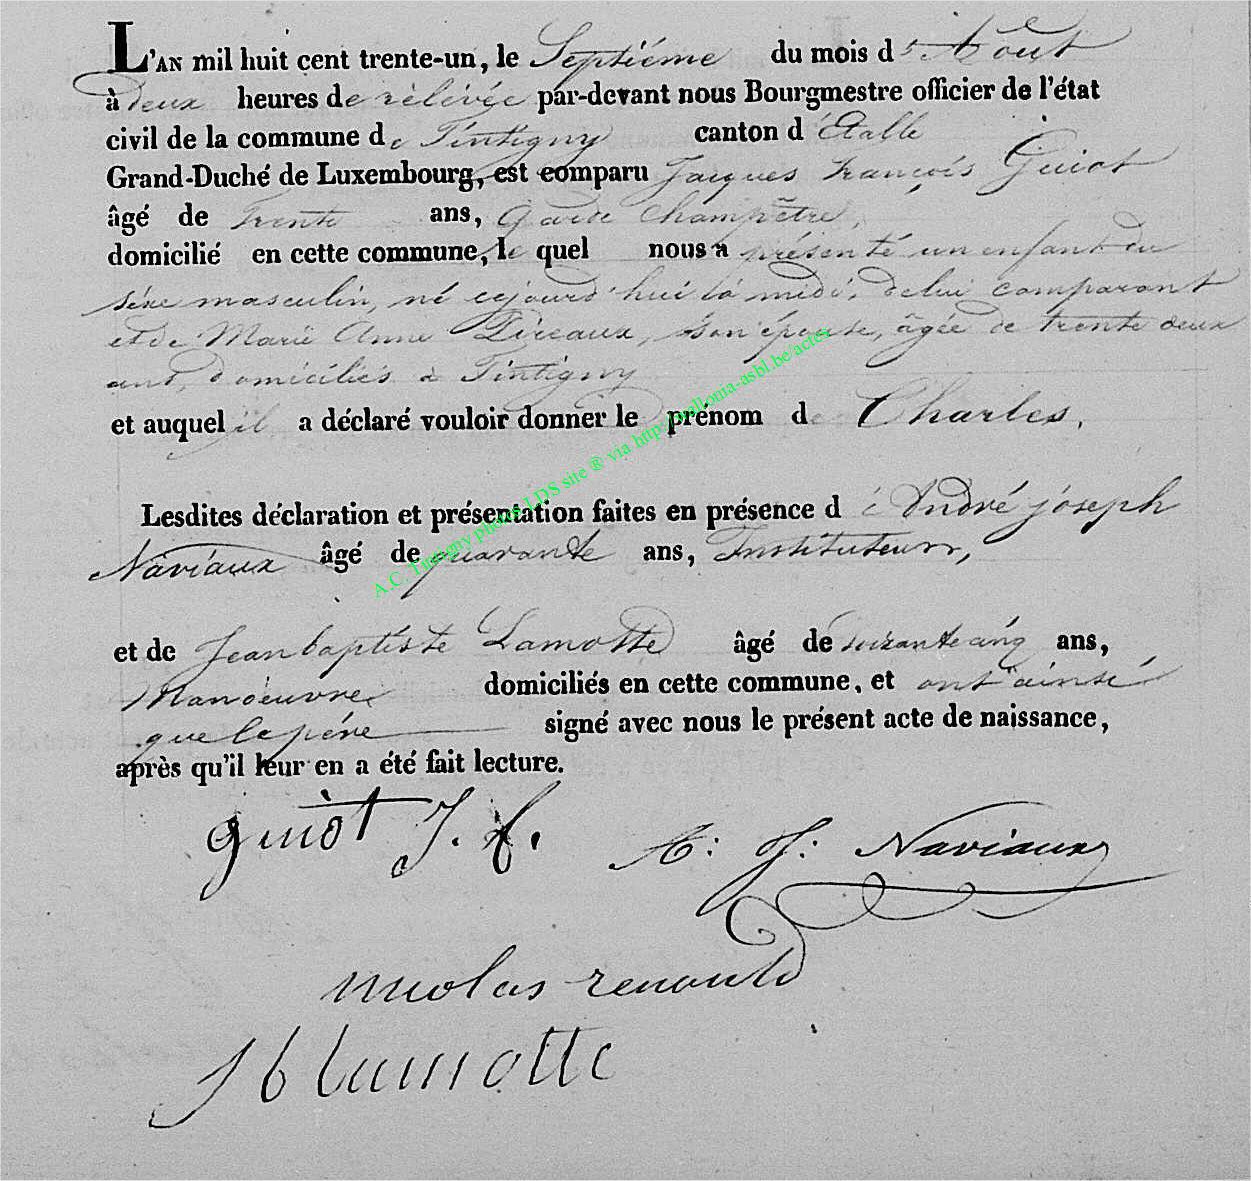 L'AN mil huit cent trente-un, le Septiéme du mois d'Août
à deux heures de rélévée par-devant nous Bourgmestre officier de l'état
civil de la commune de Tintigny canton d'Etalle
Grand-Duché de Luxembourg, est comparu Jacques François Guiot
âgé de trente ans, Garde Champêtre,
domicilié en cette commune, le quel nous a présenté un enfant du
séxe masculin, né cejourd'hui à midi, de lui comparant
et de Marie Anne Pireaux, son épouse, âgée de trente deux
ans, domiciliés à Tintigny
et auquel il a déclaré vouloir donner le prénom de Charles.
Lesdites déclaration et présentation faites en présence de André joseph
Naviaux âgé de quarante ans, Instituteur,
et de Jean baptiste Lamotte âgé de soixante cinq ans,
Manoeuvre domiciliés en cette commune, et ont ainsi
que le pére signé avec nous le présent acte de naissance,
après qu'il leur en a été fait lecture.
guiot J. f.
A: J: Naviaux
nicolas renauld
J b lamotte
A.C. Tintigny photos LDS site ® via http://wallonia-asbl.be/actes